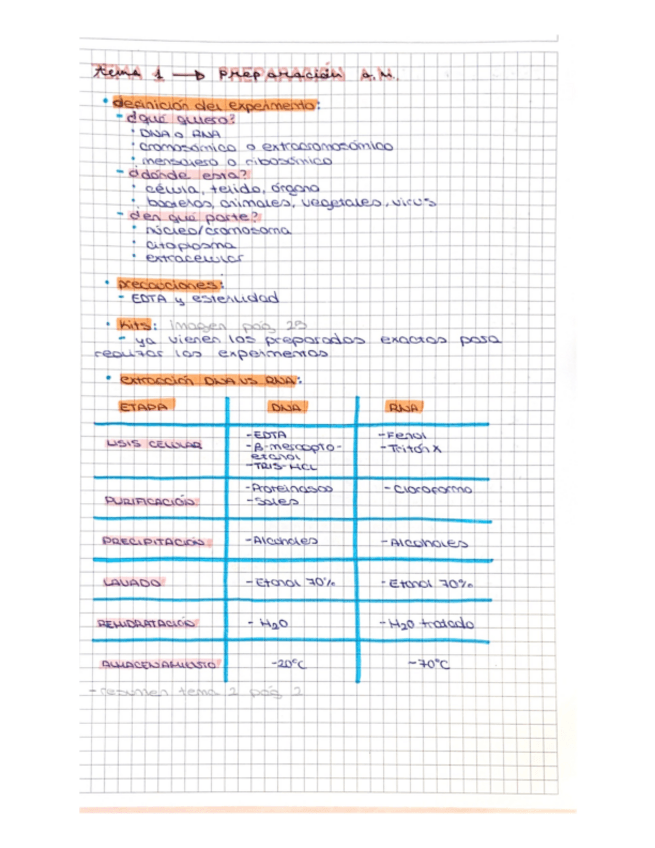 tema 1 → preparación a.n.
• definición del experimento:
- ¿qué quiero?
• DNA o RNA
• cromosómico o extracromosómico
• mensajero o ribosómico
- ¿dónde esta?
• célula, tejido, órgano
• bacterias, animales, vegetales, virus
- ¿en qué parte?
• núcleo/cromosoma
• citoplasma
• extracelular
• precauciones:
- EDTA y esterilidad
• kits: imagen pág 25
- ya vienen los preparados exactos para
realizar los experimentos
• extracción DNA VS RNA:
ETAPA DNA RNA
LISIS CELULAR
- EDTA
- β-mercapto-
etanol
- TRIS-HCL
- Fenol
- Tritón X
PURIFICACIÓN
- Proteinasas
- Sales
- Cloroformo
PRECIPITACIÓN - Alcoholes - Alcoholes
LAVADO - Etanol 70% - Etanol 70%
REHIDRATACIÓN - H2O - H2O tratado
ALMACENAMIENTO -20°C -70°C
- resumen tema 1 pág 2